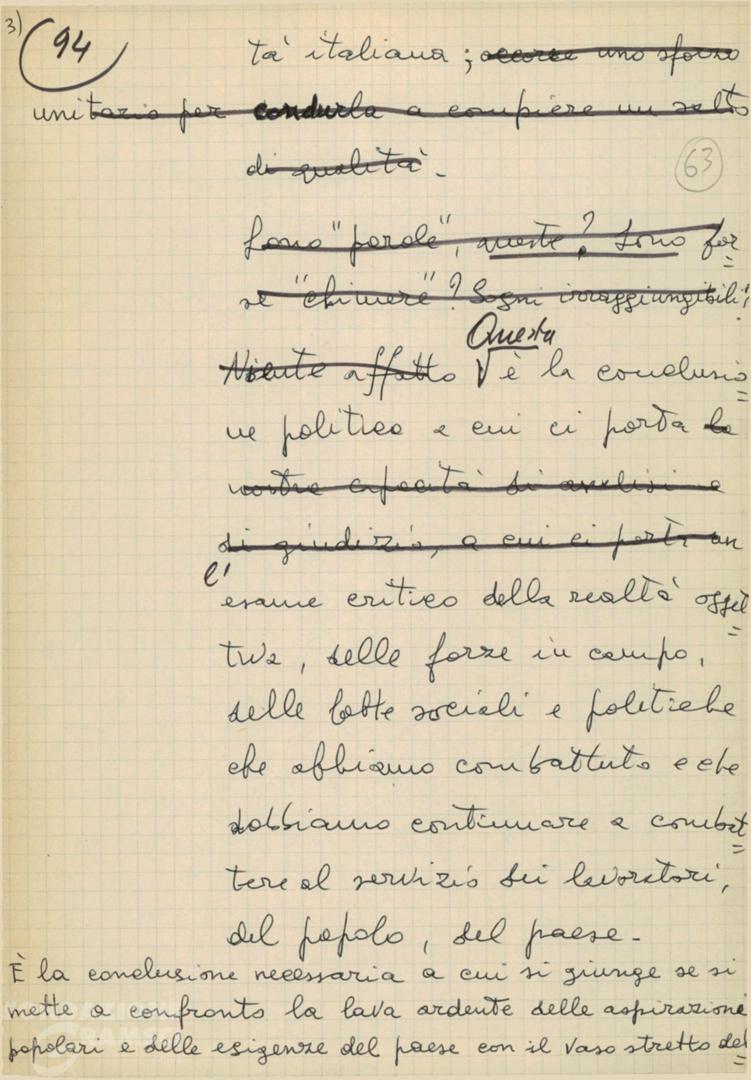 3)
94
tà italiana; occorre uno sforzo
unitario per condurla a compiere un salto
di qualità.
63
Sono "parole", queste? Sono for
se "chimere"? Sogni irraggiungibili?
Questa
Niente affatto √ è la conclusio
ne politica a cui ci porta la
nostra capacità di analisi e
di giudizio, a cui ci porta un
l'
esame critico della realtà oggět
tiva, delle forze in campo,
delle lotte sociali e politiche
che abbiamo combattuto e che
dobbiamo continuare a combat
tere al servizio dei lavoratori,
del popolo, del paese.
È la conclusione necessaria a cui si giunge se si
mette a confronto la lava ardente delle aspirazioni
popolari e delle esigenze del paese con il vaso stretto del